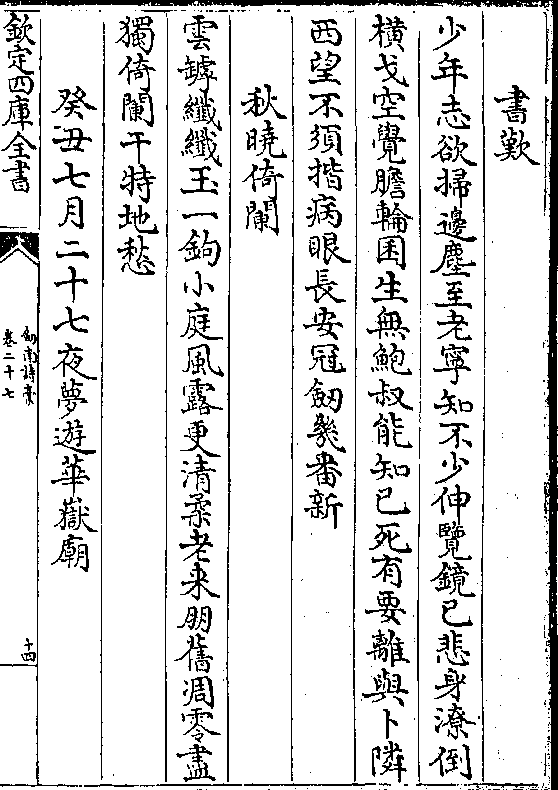 書歎
少年志欲掃邊塵至老寧知不少伸覽鏡已悲身潦倒
橫戈空覺膽輪囷生無鮑叔能知已死有要離與卜隣
西望不須揩病眼長安冠劒幾番新
秋曉倚闌
雲罅纖纖玉一鉤小庭風露更清柔老来朋舊凋零盡
獨倚闌干特地愁
癸丑七月二十七夜夢遊華嶽廟
欽定四庫全書
劍南詩藁
卷二十七
十四